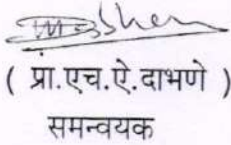 ( प्रा.एच.ऐ.दाभणे )
समन्वयक